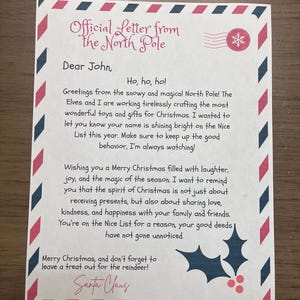 Official Letter from
the North Pole
Dear John,
Ho, ho, ho!
Greetings from the snowy and magical North Pole! The
Elves and I are working tirelessly crafting the most
wonderful toys and gifts for Christmas. I wanted to
let you know your name is shining bright on the Nice
List this year. Make sure to keep up the good
behavior, I'm always watching!
Wishing you a Merry Christmas filled with laughter,
joy, and the magic of the season. I want to remind
you that the spirit of Christmas is not just about
receiving presents, but also about sharing love,
kindness, and happiness with your family and friends.
You're on the Nice List for a reason, your good deeds
have not gone unnoticed.
Merry Christmas, and don't forget to
leave a treat out for the reindeer!
Santa Claus